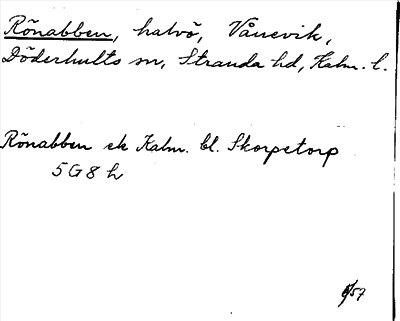 Rönabben, halvö, Vånevik,
Döderhults sn, Stranda hd, Kalm. l.
Rönabben ek Kalm. bl. Skorpetorp
5G8h
/57